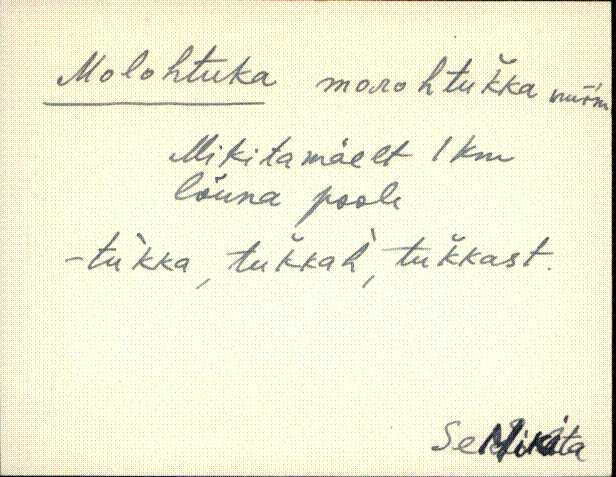 Molohtuka moлohtŭkka nurm
Mikitamäelt 1 km
lõuna poole
-tùkka, tŭkkah̀, tŭkkast.
Se Mikita